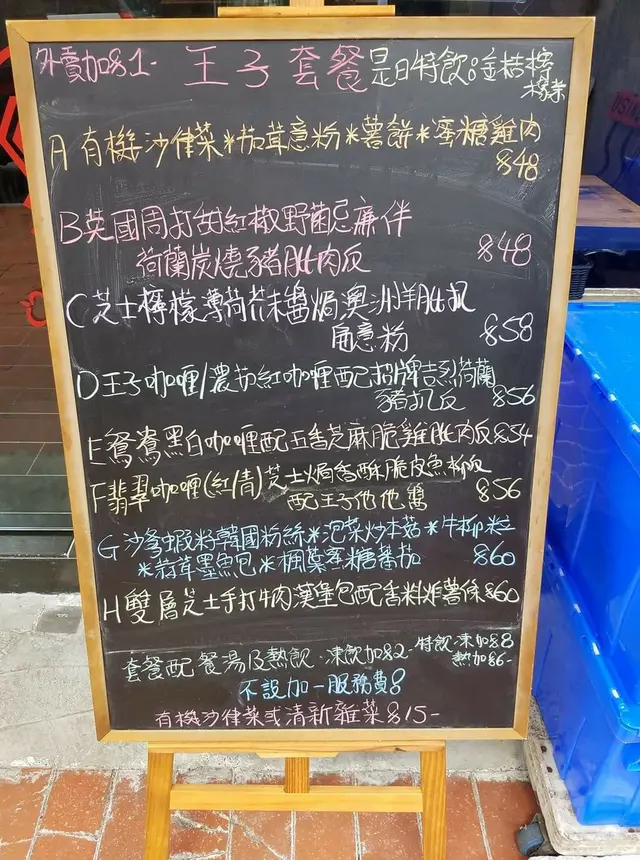 外賣加$1- 王子套餐 是日特飲:金桔檸檬茶
A 有機沙律菜*茄茸意粉*薯餅*蜜糖雞肉
$48
B 英國周打甜紅椒野菌忌廉伴
荷蘭炭燒豬肶肉反
$48
C 芝士檸檬薄荷芥末醬焗澳洲羊肶扒
角意粉 $58
D 王子咖喱/濃茄紅咖喱西已招牌吉列荷蘭
豬扒反 $56
E 鴛鴦黑白咖喱配五香芝麻脆雞肶肉反$54
F 翡翠咖喱(紅/青)芝士焗香酥脆皮魚柳反
配王子他他醬 $56
G 沙爹蝦粉韓國粉絲*泡菜炒本菇*牛柳粒
*茄茸墨魚包*楓葉蜜糖蕃茄 $60
H 雙層芝士手打牛肉漢堡包配香料炸薯條$60
套餐配餐湯及熱飲·凍飲加$2- 特飲:凍加$8
熱加$6-
不設加一服務費!
有機沙律菜或清新雜菜$15-